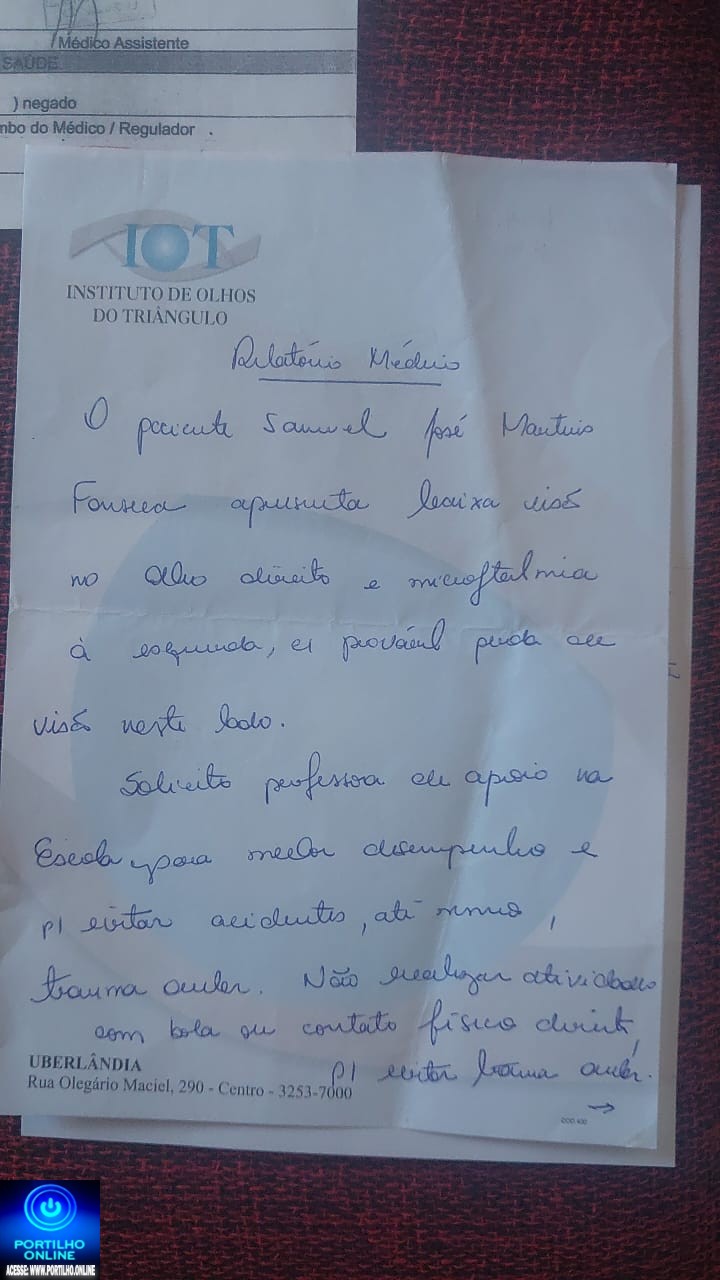 /Médico Assistente
SAÚDE
) negado
mbo do Médico / Regulador .
IOT
INSTITUTO DE OLHOS
DO TRIÂNGULO
Relatório Médico
O paciente Samuel José Martins
Fonseca apresenta baixa visão
no olho direito e microftalmia
à esquerda, c/ provável perda de
visão neste lado.
Solicito professora de apoio na
Escola, para melhor desempenho e
p/ evitar acidentes, até mesmo,
trauma ocular. Não realizar atividades
com bola ou contato físico direto,
p/ evitar trauma ocular.
→
UBERLÂNDIA
Rua Olegário Maciel, 290 - Centro - 3253-7000
COD. 400
PORTILHO
ONLINE
ACESSE: WWW.PORTILHO.ONLINE